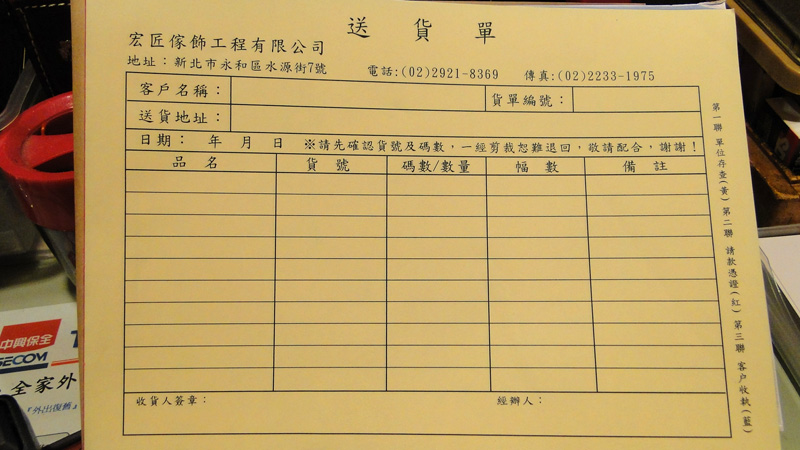 送貨單
宏匠傢飾工程有限公司
地址：新北市永和區水源街7號 電話:(02)2921-8369 傳真:(02)2233-1975
客戶名稱： 貨單編號：
送貨地址：
日期： 年 月 日 ※請先確認貨號及碼數，一經剪裁恕難退回，敬請配合，謝謝！
品名 貨號 碼數/數量 幅數 備註
收貨人簽章： 經辦人：
第一聯 單位存查(黃) 第二聯 請款憑證(紅) 第三聯 客戶收執(藍)
中興保全
SECOM
全家外
『外出復舊』